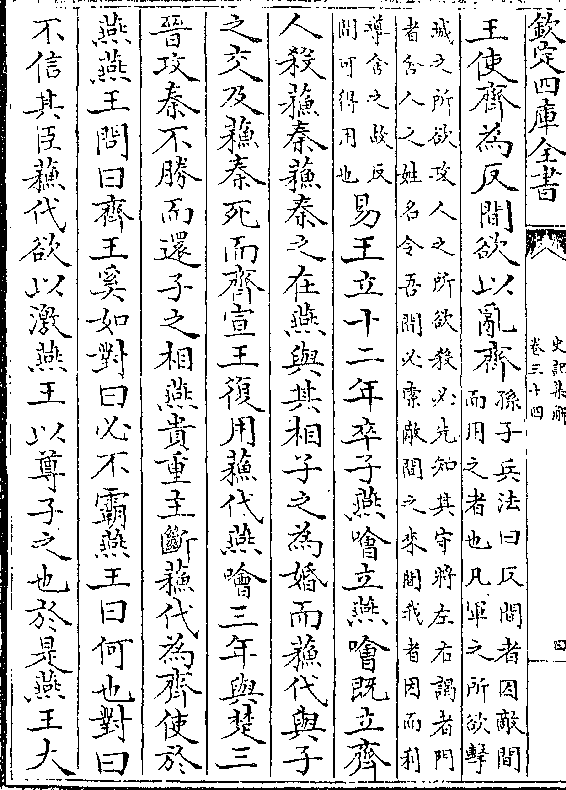 欽定四庫全書
史記集解
卷三十四
四
王使齊為反間欲以亂齊
孫子兵法曰反間者因敵間
而用之者也凡軍之所欲擊
城之所欲攻人之所欲殺必先知其守將左右謁者門
者舍人之姓名令吾間必索敵間之來間我者因而利
導舍之故反
間可得用也
易王立十二年卒子燕噲立燕噲既立齊
人殺蘓秦蘓秦之在燕與其相子之為婚而蘓代與子
之交及蘓秦死而齊宣王復用蘓代燕噲三年與楚三
晉攻秦不勝而還子之相燕貴重主斷蘓代為齊使於
燕燕王問曰齊王奚如對曰必不霸燕王曰何也對曰
不信其臣蘓代欲以激燕王以尊子之也於是燕王大